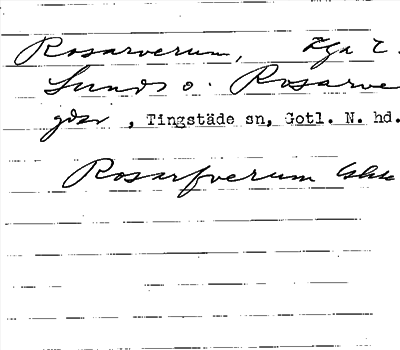 Rosarverum, äga t.
Lunds o. Rosarve
gdar, Tingstäde sn, Gotl. N. hd.
Rosarfverum